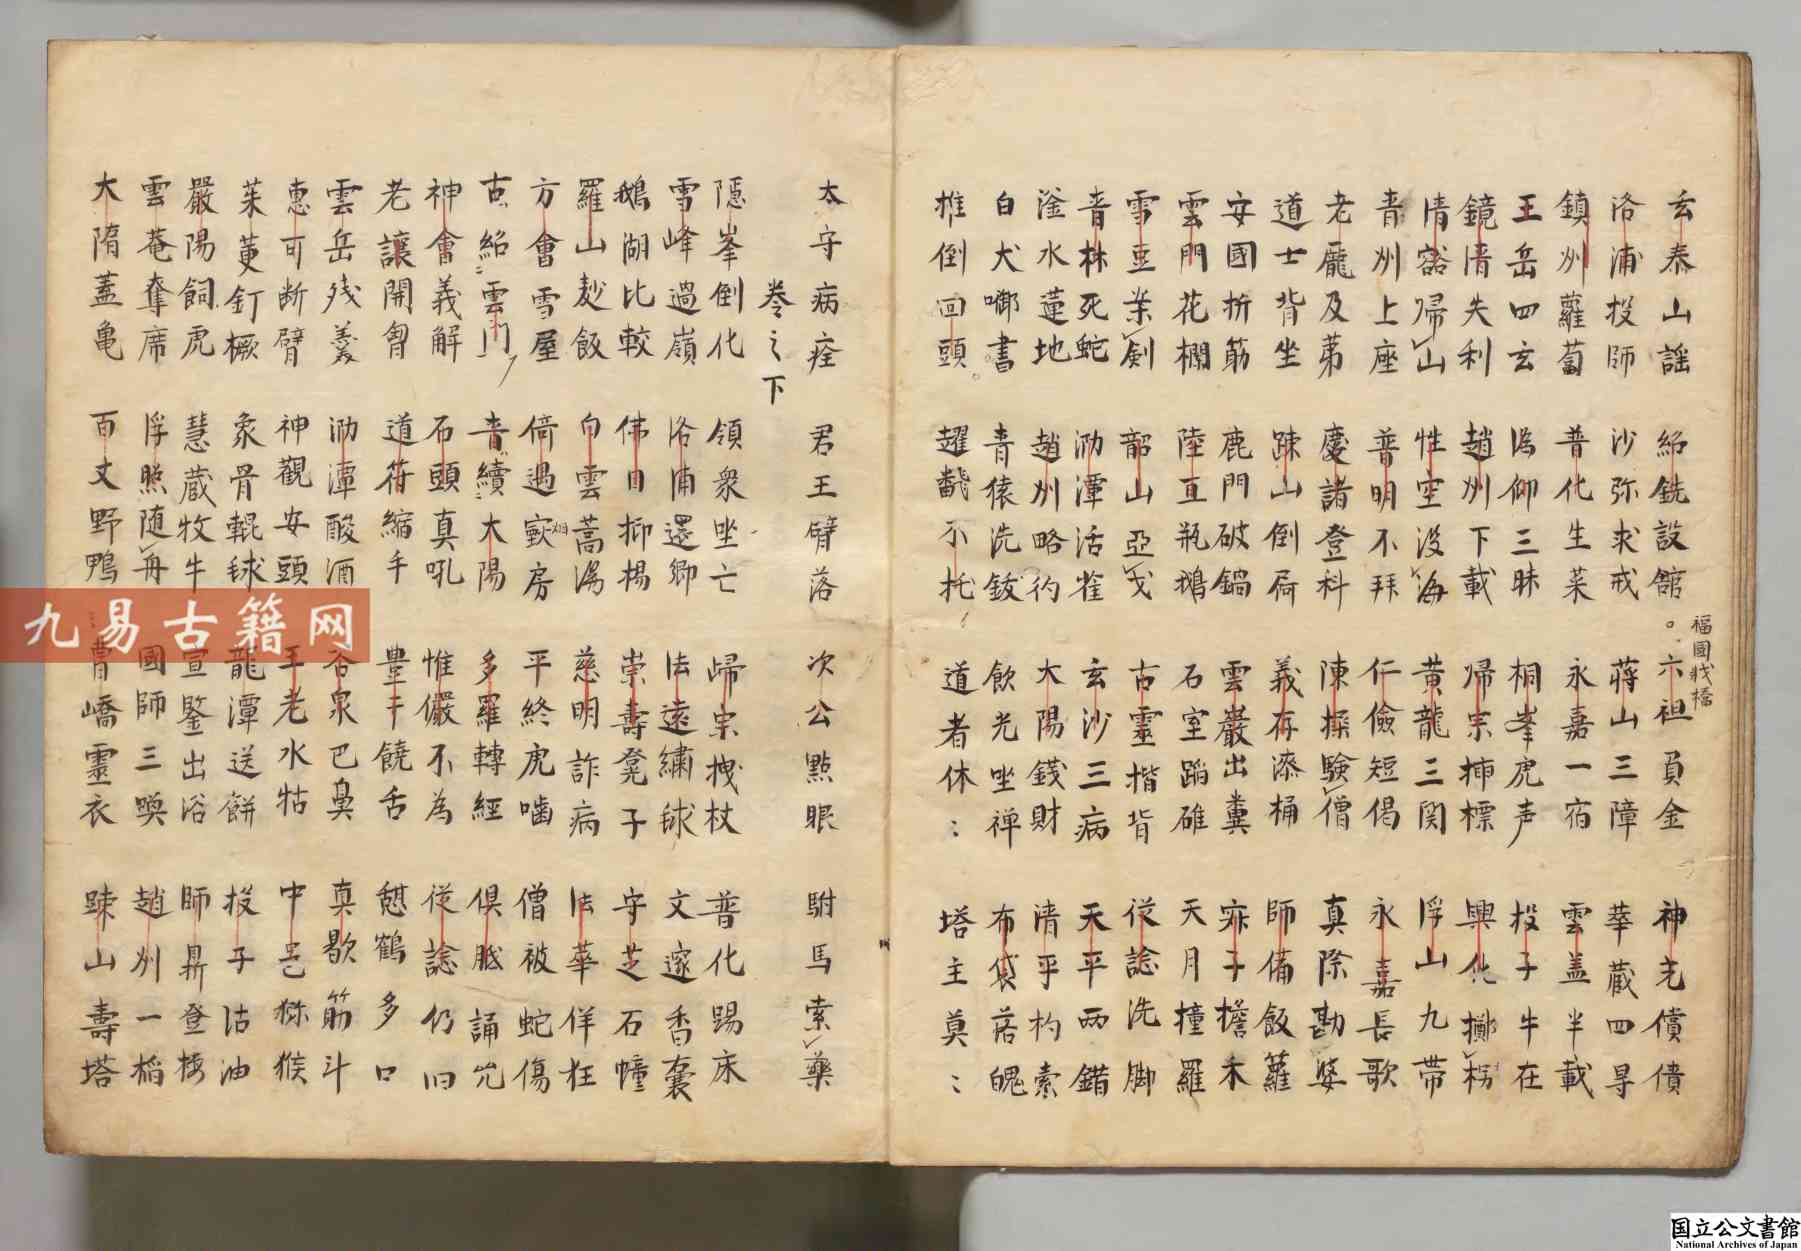 玄泰山謡　紹銑設館　六祖負金　神光償債
福國栽橋
洛浦投師　沙弥求戒　蒋山三障　華蔵四尋
鎮州蘿蔔　普化生菜　永嘉一宿　雲盖半載
王岳四玄　溈仰三昧　桐峯虎声　投子牛在
鏡清失利　趙州下載　帰宗挿標　興化擲柺
清豁帰山　性空没海　黄龍三関　浮山九帯
青州上座　普明不拜　仁儉短偈　永嘉長歌
老龐及苐　慶諸登科　陳操験僧　真際勘婆
道士背坐　踈山倒屙　義存漆桶　師備飯蘿
安國折筋　鹿門破鍋　雲巖出糞　㝡子擔禾
雲門花欄　陸亘瓶鵝　石室蹈碓　天月撞羅
雪豆業剣　韶山亞戈　古靈揩背　従諗洗脚
青林死蛇　泐潭活雀　玄沙三病　天平両錯
滏水蓮地　趙州略彴　大陽錢財　清平杓索
白犬啣書　青猿洗鈸　飲光坐禅　布袋落魄
推倒回頭　趯飜不托　道者休〻　塔主莫〻
太守病痊　君王臂落　次公點眼　駙馬索藥
巻之下
隠峯倒化　領衆坐亡　歸宗拽杖　普化踢床
雪峰過嶺　洛浦還郷　法遠繍毬　文邃香嚢
鵝湖比較　佛日抑揚　崇壽凳子　守芝石幢
羅山麨飯　白雲蒿湯　慈明詐病　法華佯狂
方會雪屋　倚遇歘房　平終虎囓　僧被蛇傷
古紹雲門　青續大陽　多羅轉經　倶胝誦咒
神會義解　石頭真吼　惟儼不為　従諗仍旧
老讓開胷　道符縮手　豊干饒舌　憇鶴多口
雲岳残羹　泐潭酸酒　否泉巴鼻　真歇筋斗
惠可断臂　神觀安頭　王老水牯　中邑猕猴
茱萸釘橛　象骨輥毬　龍潭送餅　投子沽油
嚴陽飼虎　慧蔵牧牛　宣鑒出浴　師鼎登楼
雲菴奪席　浮照随舟　國師三喚　趙州一稲
大隋蓋亀　百丈野鴨　曹嶠靈衣　踈山壽塔
九易古籍网
国立公文書館
National Archives of Japan